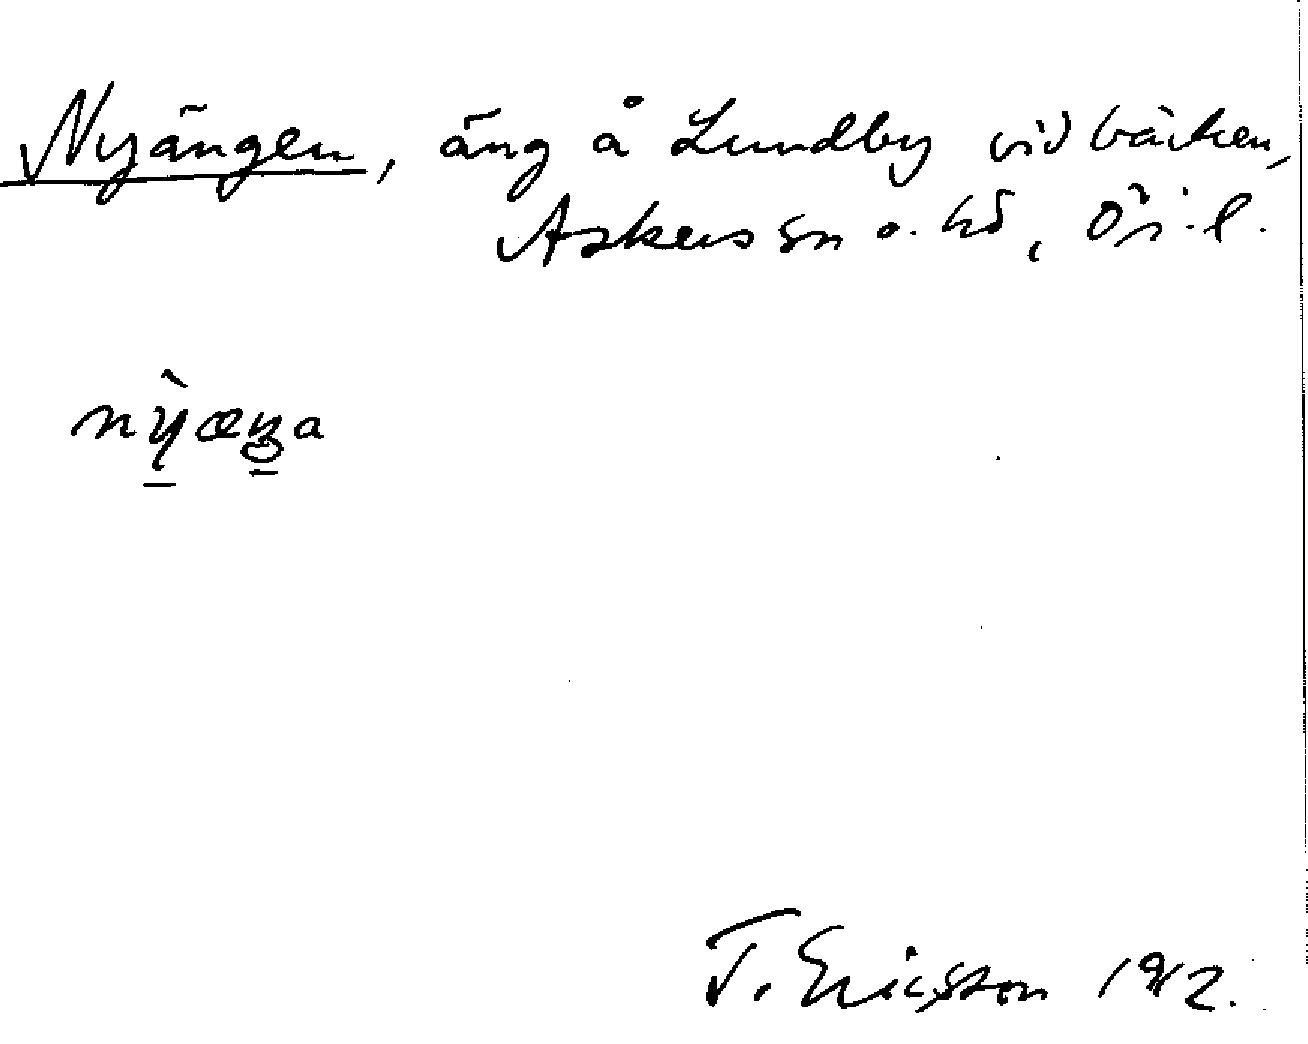 Nyängen, äng å Lundby vid bäcken,
Askers sn o. hd, Ör. l.
nỳæŋa
T. Ericsson 1912.